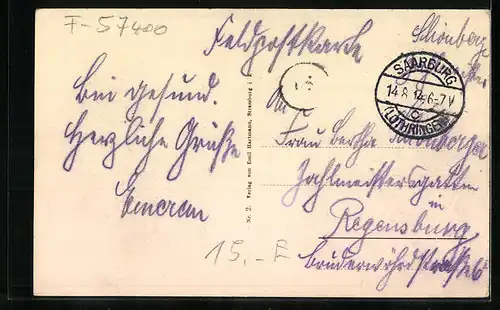 F-57400
Feldpostkarte
Schönberg
SAARBURG
14.8.14.6-7V
(LOTHRINGEN)
Bin gesund.
Herzliche Grüße
Emeran
An
Frau Bertha Schönberger
Zahlmeistersgattin
in
Regensburg
Bruderwöhrdstraße
Nr. 2. Verlag von Emil Hartmann, Strassburg i.
15.-E